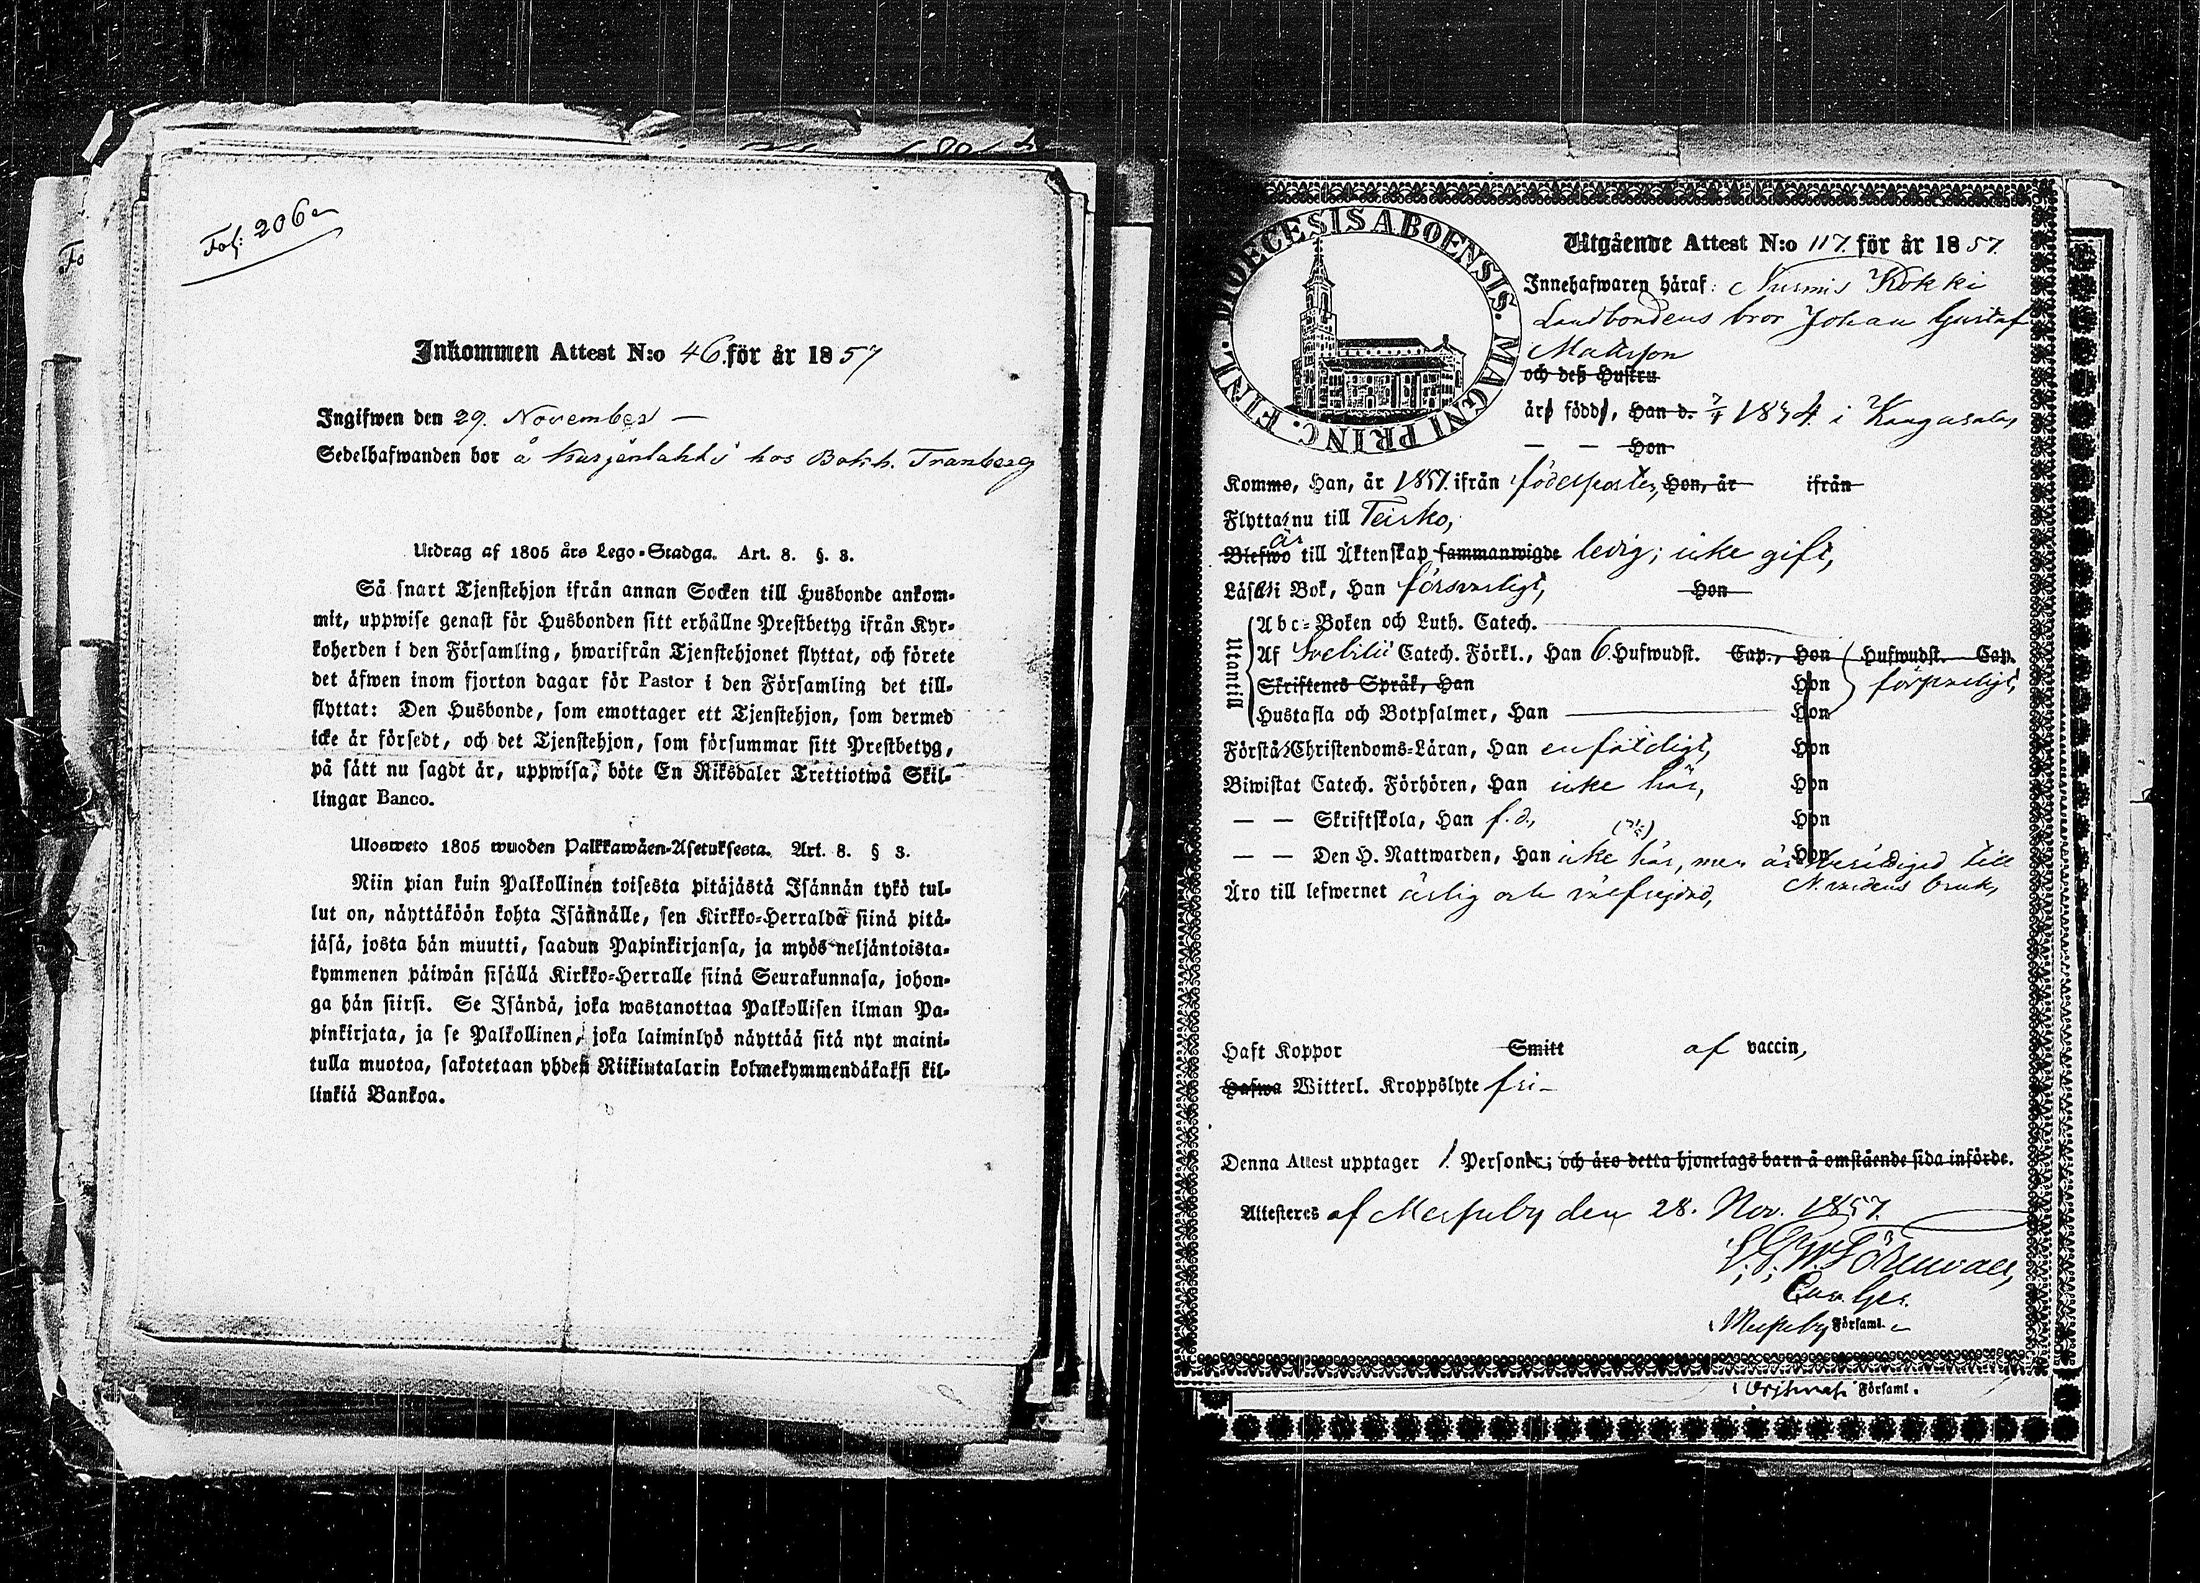 Fol: 206
Inkommen Attest N:o 46. för år 1857
Ingifwen den 29. November —
Sedelhafwanden bor å Kurjenlahti hos Bokh. Tranberg
Utdrag af 1805 års Lego-Stadga. Art. 8. §. 3.
Så snart Tjenstehjon ifrån annan Socken till Husbonde ankom-
mit, uppwise genast för Husbonden sitt erhållne Prestbetyg ifrån Kyr-
koherden i den Församling, hwarifrån Tjenstehjonet flyttat, och förete
det äfwen inom fjorton dagar för Pastor i den Församling det till-
flyttat: Den Husbonde, som emottager ett Tjenstehjon, som dermed
icke är försedt, och det Tjenstehjon, som försummar sitt Prestbetyg,
på sätt nu sagdt är, uppwisa, böte En Riksdaler Trettiotwå Skil-
lingar Banco.
Ulosweto 1805 wuoden Palkkawäen-Asetuksesta. Art. 8. § 3.
Niin pian kuin Palkollinen toisesta pitäjästä Isännän tykö tul-
lut on, näyttäköön kohta Isännälle, sen Kirkko-Herralda siinä pitä-
jäsä, josta hän muutti, saadun Papinkirjansa, ja myös neljäntoista-
kymmenen päiwän sisällä Kirkko-Herralle siinä Seurakunnasa, johon-
ga hän siirsi. Se Isändä, joka wastanottaa Palkollisen ilman Pa-
pinkirjata, ja se Palkollinen, joka laiminlyö näyttää sitä nyt maini-
tulla muotoa, sakotetaan yhden Riikintalarin kolmekymmendäkaksi kil-
linkiä Bankoa.
DIOECESIS ABOENSIS. MAGNI PRINC. FINL.
Utgående Attest N:o 117. för år 1857.
Innehafwaren häraf: Nurmis Kokki
Landbondens bror Johan Gustaf
Mattsson
och deß Hustru
är född, Han d. 7/4 1834. i Kangasala,
— — Hon
Kommo, Han, år 1857. ifrån födelseorten, Hon, år ifrån
Flyttar nu till Teisko,
Blefwo är till Äktenskap sammanwigde ledig; icke gift,
Läser i Bok, Han försvarligt, Hon
Utantill
Abc-Boken och Luth. Catech.
Af Svebilii Catech. Förkl., Han 6. Hufwudst. Cap., Hon Hufwudst. Cap.
Skriftenes Språk, Han Hon försvarligt,
Hustafla och Botpsalmer, Han Hon
Förstår Christendoms-Läran, Han enfaldigt, Hon
Biwistat Catech. Förhören, Han icke här, Hon
— — Skriftskola, Han f. d., Hon
— — Den H. Nattwarden, Han icke här, men är berättigad till Hon
N.vardens bruk,
Äro till lefwernet ärlig och välfrejdad,
Haft Koppor Smitt af vaccin,
Hafwa Witterl. Kroppslyte fri —
Denna Attest upptager 1. Person; och äro detta hjonelags barn å omstående sida införde.
Attesteres af Messuby den 28. Nov. 1857.
Messuby Församl.
Församl.